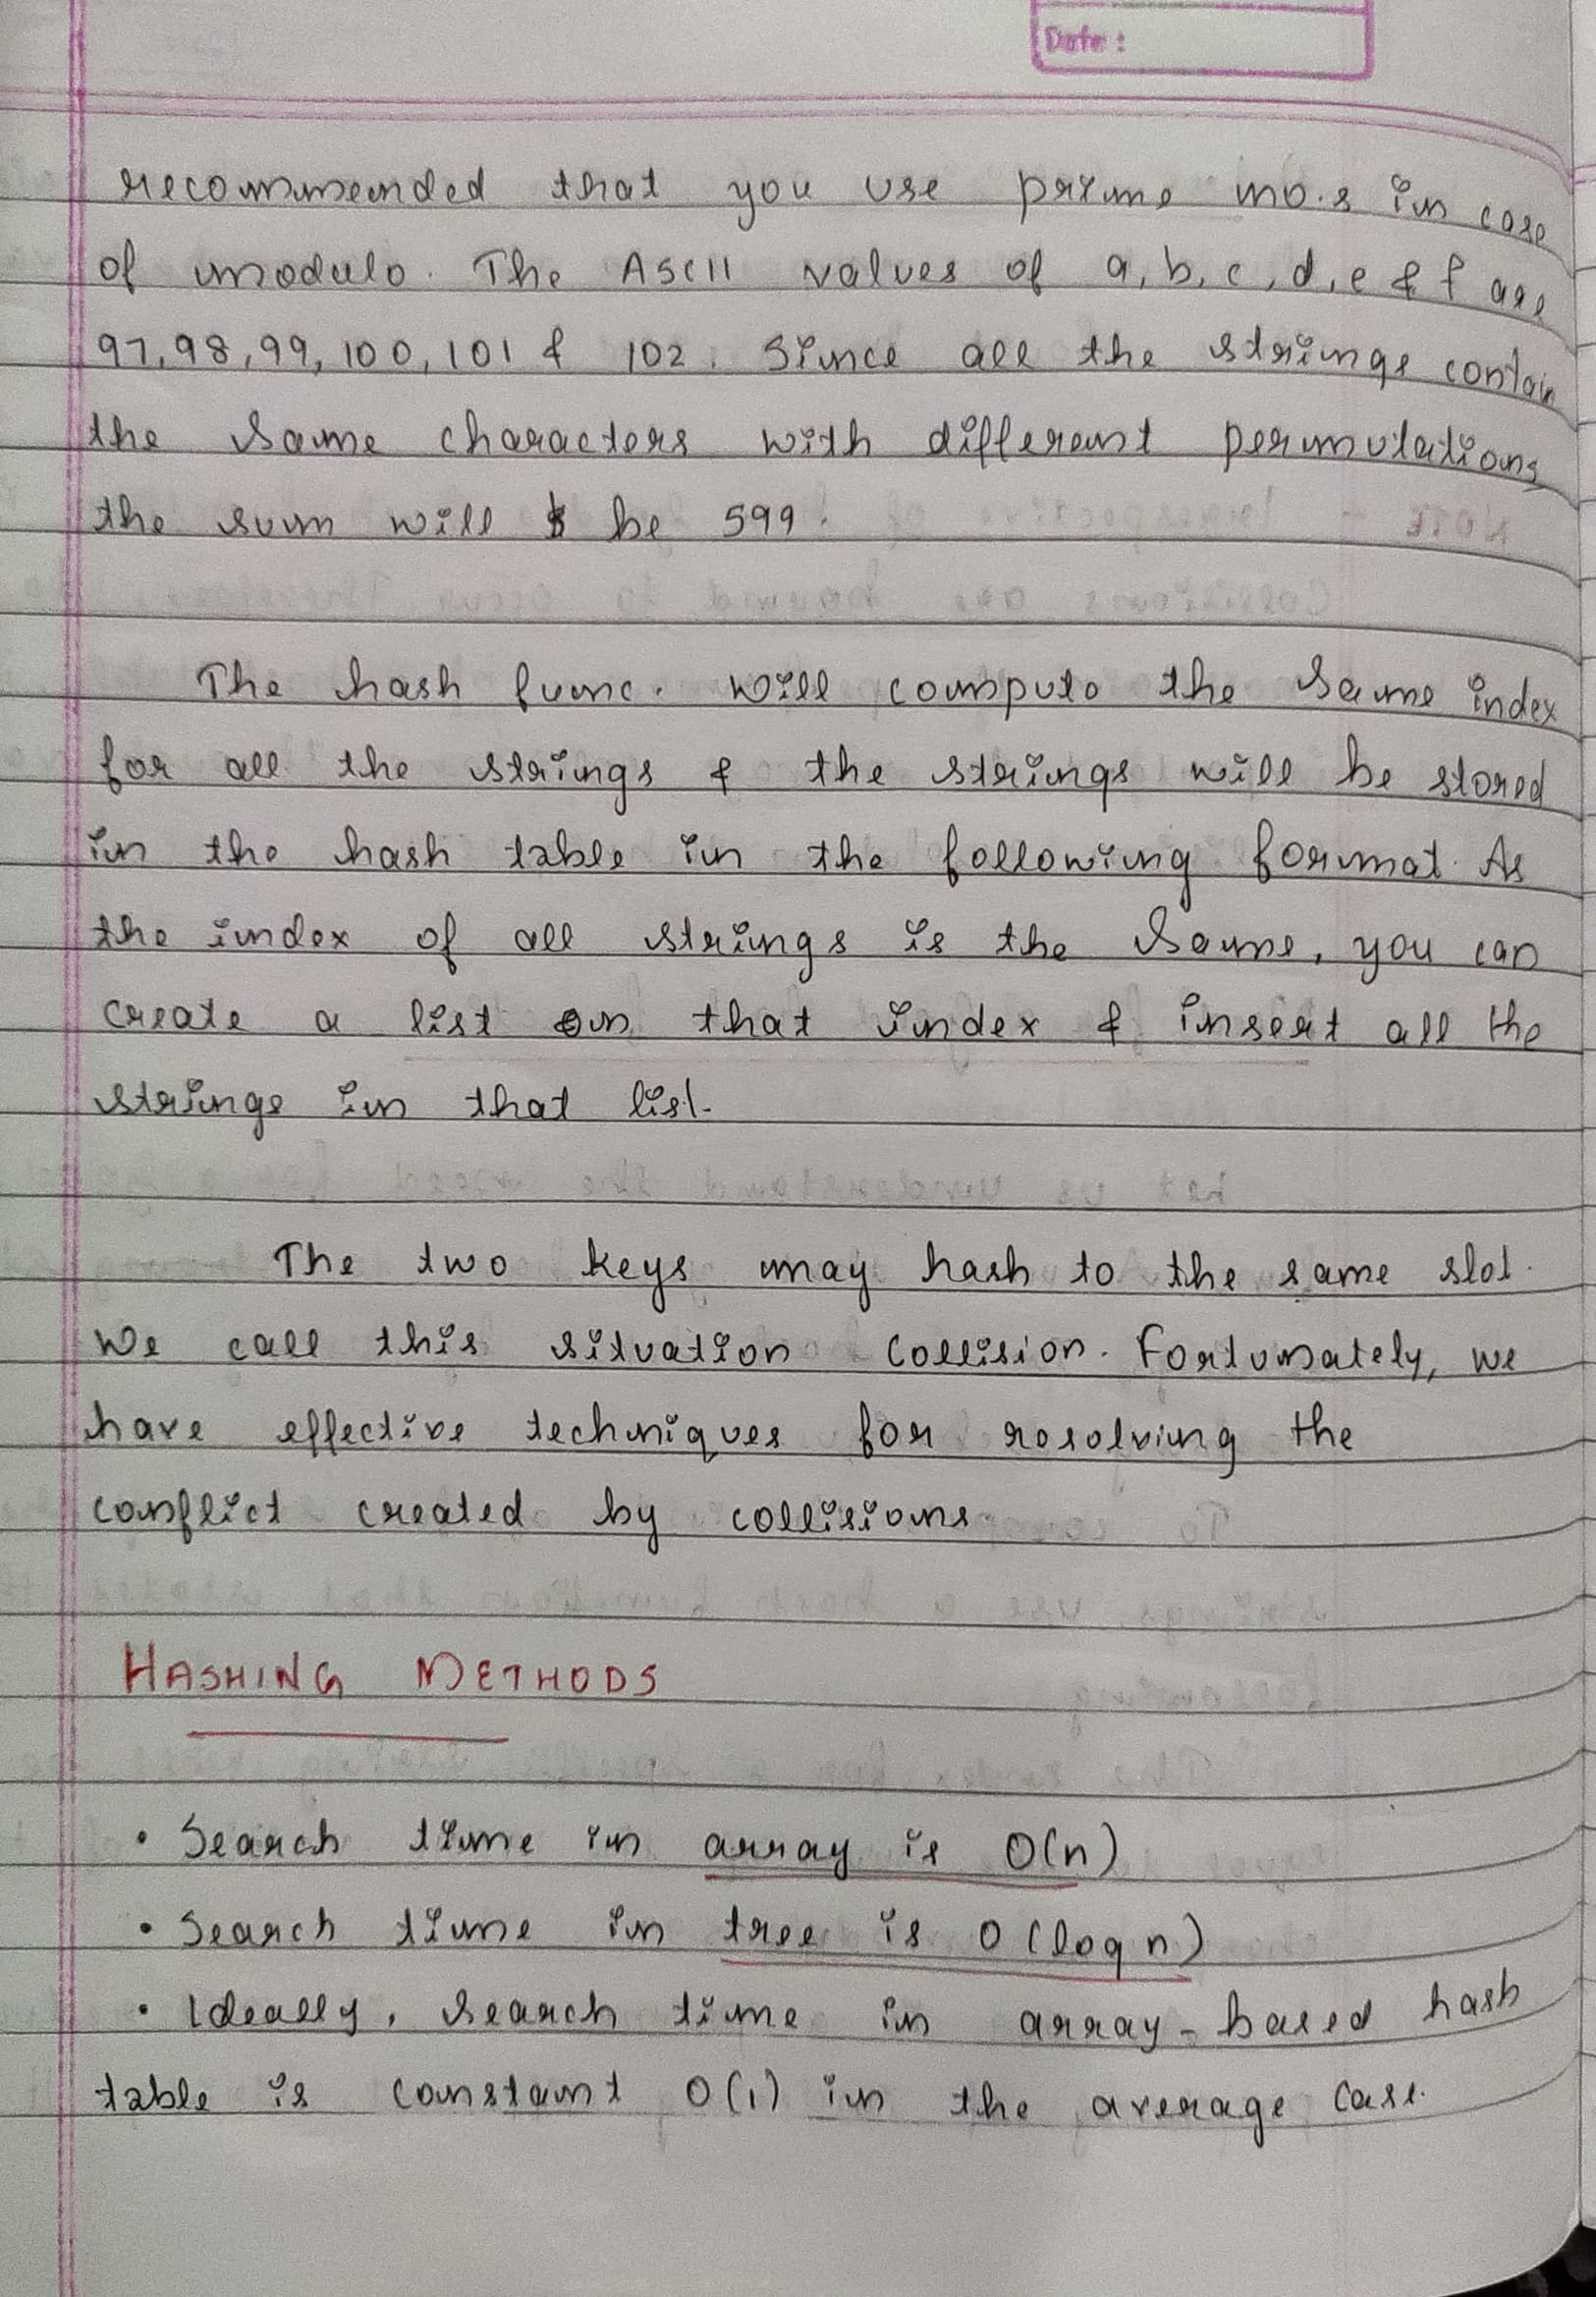 Date :
recommended that you use prime no.s in case
of modulo. The ASCII values of a, b, c, d, e & f are
97, 98, 99, 100, 101 & 102. Since all the strings contain
the same characters with different permutations
the sum will be 599.
The hash func. will compute the same index
for all the strings & the strings will be stored
in the hash table in the following format. As
the index of all strings is the same, you can
create a list on that index & insert all the
strings in that list.
The two keys may hash to the same slot.
We call this situation collision. Fortunately, we
have effective techniques for resolving the
conflict created by collisions.
HASHING METHODS
• Search time in array is O(n)
• Search time in tree is O(log n)
• Ideally, search time in array-based hash
table is constant O(1) in the average case.